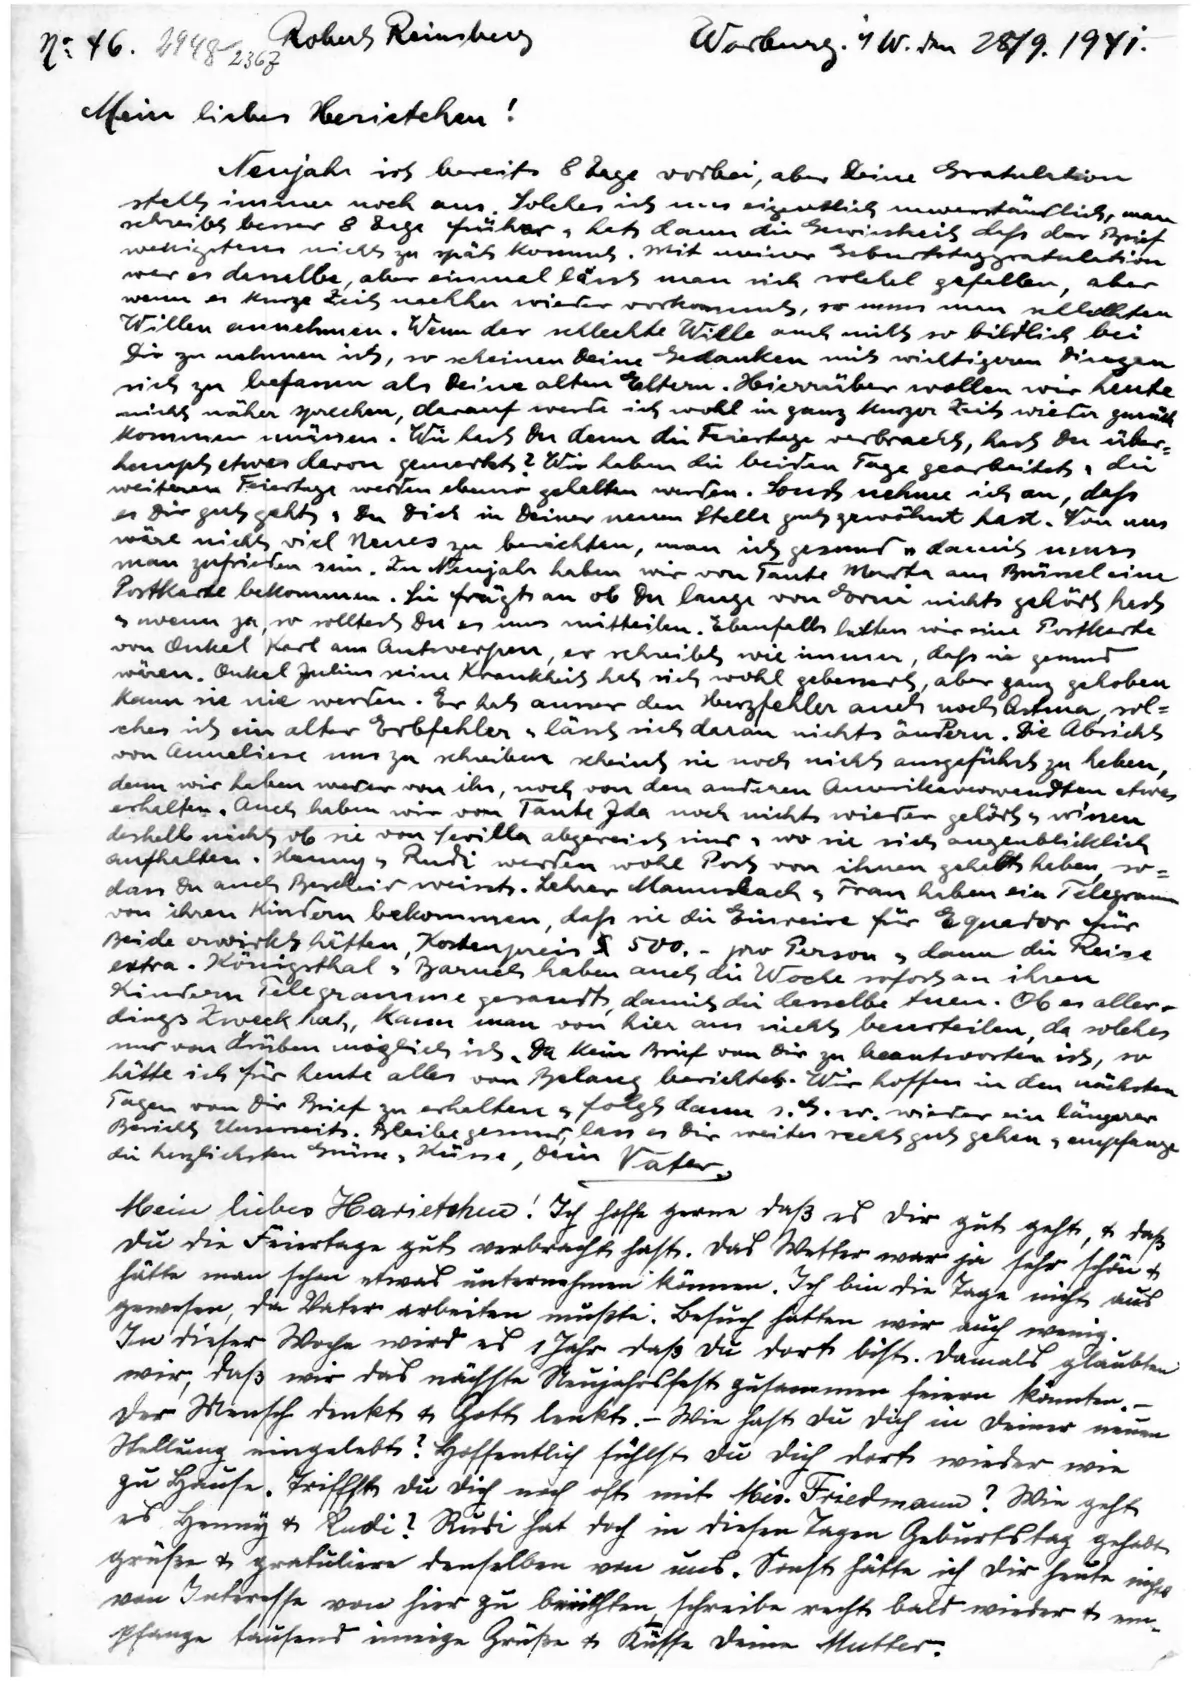 Nr. 46. 2948 2367 Robert Reinsberg Warburg. i/W. den 28/9. 1941.
Mein liebes Herietchen!
Neujahr ist bereits 8 Tage vorbei, aber Deine Gratulation
steht immer noch aus. Solches ist uns eigentlich unverständlich, man
schreibt besser 8 Tage früher u hat dann die Gewissheit dass der Brief
wenigstens nicht zu spät kommt. Mit meiner Geburtstaggratulation
war es dasselbe, aber einmal lässt man sich solches gefallen, aber
wenn es kurze Zeit nachher wieder vorkommt, so muss man schlechten
Willen annehmen. Wenn der schlechte Wille auch nicht so bildlich bei
Dir zu nehmen ist, so scheinen Deine Gedanken mit wichtigeren Dingen
sich zu befassen als Deine alten Eltern. Hierrüber wollen wir heute
nicht näher sprechen, darauf werde ich wohl in ganz kurzer Zeit wieder zurück
kommen müssen. Wie hast Du denn die Feiertage verbracht, hast Du über=
haupt etwas davon gemerkt? Wir haben die beiden Tage gearbeitet u die
weiteren Feiertage werden ebenso gehalten werden. Sonst nehme ich an, dass
es Dir gut geht u Du Dich in Deiner neuen Stelle gut gewöhnt hast. Von uns
wäre nicht viel Neues zu berichten, man ist gesund u damit muss
man zufrieden sein. Zu Neujahr haben wir von Tante Marta aus Brüssel eine
Postkarte bekommen. Sie frägt an ob Du lange von Erni nichts gehört hast
u wenn ja, so solltest Du es uns mitteilen. Ebenfalls hatten wir eine Postkarte
von Onkel Karl aus Antwerpen, er schreibt wie immer, dass sie gesund
wären. Onkel Julius seine Krankheit hat sich wohl gebessert, aber ganz gehoben
kann sie nie werden. Er hat ausser den Herzfehler auch noch Astma, sol=
ches ist ein alter Erbfehler u lässt sich daran nichts ändern. Die Absicht
von Anneliese uns zu schreiben scheint sie noch nicht ausgeführt zu haben,
denn wir haben weder von ihr, noch von den anderen Amerikaverwandten etwas
erhalten. Auch haben wir von Tante Ida noch nichts wieder gehört u wissen
deshalb nicht ob sie von Sevilla abgereist sind u wo sie sich augenblicklich
aufhalten. Henny u Rudi werden wohl Post von ihnen gehabt haben, so=
dass Du auch Bescheid weisst. Lehrer Mannsbach u Frau haben ein Telegramm
von ihren Kindern bekommen, dass sie die Einreise für Equador für
Beide erwirkt hätten, Kostenpreis $ 500.- pro Person u dann die Reise
extra. Königsthal u Baruch haben auch die Woche sofort an ihren
Kindern Telegramme gesandt, damit die dasselbe tuen. Ob es aller-
dings Zweck hat, kann man von hier aus nicht beurteilen, da solches
nur von drüben möglich ist. Da kein Brief von Dir zu beantworten ist, so
hätte ich für heute alles von Belang berichtet. Wir hoffen in den nächsten
Tagen von Dir Brief zu erhalten u folgt dann s. G. w. wieder ein längerer
Bericht Unserseits. Bleibe gesund, lass es Dir weiter recht gut gehen u empfange
die herzlichsten Grüsse u Küsse, Dein Vater.
Mein liebes Harietchen! Ich hoffe gerne daß es Dir gut geht, & daß
Du die Feiertage gut verbracht hast. Das Wetter war ja sehr schön &
hätte man schon etwas unternehmen können. Ich bin die Tage nicht aus
gewesen, da Vater arbeiten mußte. Besuch hatten wir auch wenig.
In dieser Woche wird es 1 Jahr daß Du dort bist. Damals glaubten
wir, daß wir das nächste Neujahrsfest zusammen feiern könnten. –
Der Mensch denkt & Gott lenkt. – Wie hast Du Dich in Deiner neuen
Stellung eingelebt? Hoffentlich fühlst Du Dich dort wieder wie
zu Hause. Triffst Du Dich noch oft mit Mis. Friedmann? Wie geht
es Henny & Rudi? Rudi hat doch in diesen Tagen Geburtstag gehabt
grüße & gratuliere denselben von uns. Sonst hätte ich Dir heute nichts
von Interesse von hier zu berichten, schreibe recht bald wieder & em-
pfange tausend innige Grüße & Küsse Deine Mutter.